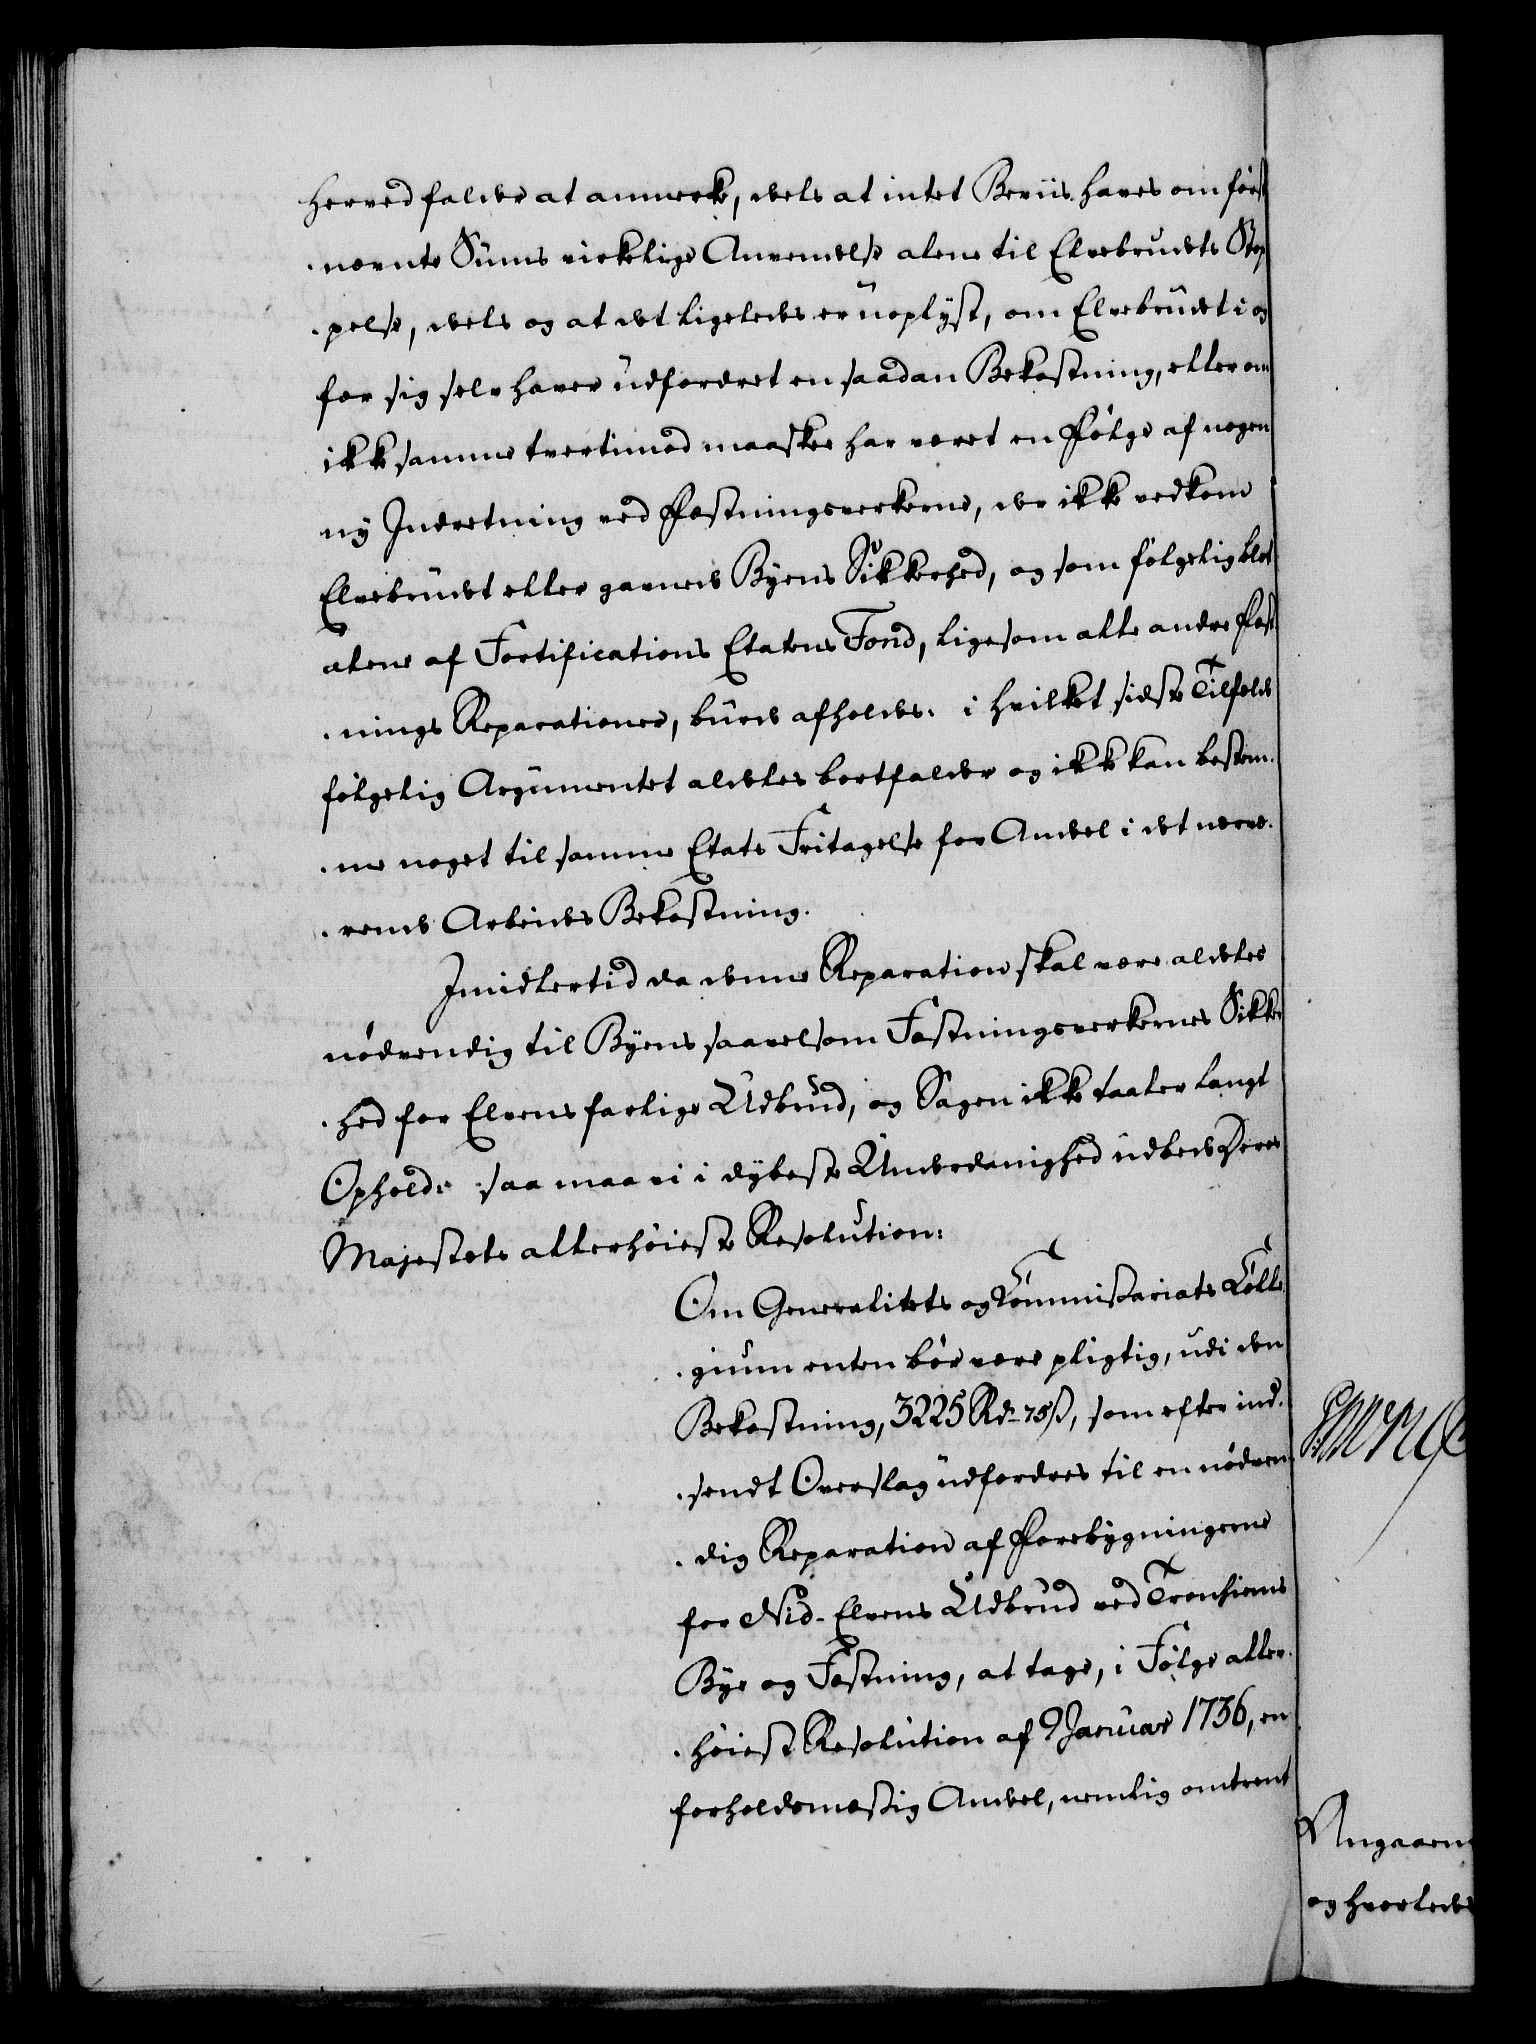 herved falder at anmerke, dels at intet Beviis haves om først
-nevnte Sums virkelige Anvendelse alene til Elvebrudets Stop
-pelse, dels og at det ligeledes er uoplyst, om Elvebrudet i og
for sig selv haver udfordret en saadan Bekostning, eller om
ikke samme tvertimod maaskee har været en Følge af nogen
ny Indretning ved Fæstningsverkerne, der ikke vedkom
Elvebrudet eller gavnede Byens Sikkerhed, og som følgelig blot
alene af Fortifications Etatens Fond, ligesom alle andre Fæst
-nings Reparationer, burde afholdes. i hvilket sidste Tilfælde
følgelig Argumentet aldeles bortfalder og ikke kan bestem-
-me noget til samme Etats Fritagelse for Andel i det nærvæ-
-rende Arbeides Bekostning.
Imidlertid da denne Reparation skal være aldeles
nødvendig til Byens saavelsom Fæstningsverkernes Sikker
-hed for Elvens farlige Udbrud, og Sagen ikke taaler langt
Ophold: saa maa vi i dybeste Underdanighed udbede Deres
Majestæts allerhøieste Resolution:
Om Generalitets og Commissariats Colle
-gium enten bør være pligtig, udi den
Bekostning, 3225 Rd. 75 ß, som efter ind-
-sendt Overslag udfordres til en nødven-
-dig Reparation af Forebygningerne
for Nid-Elvens Udbrud ved Tronhiems
Bye og Fæstning, at tage, i Følge aller-
-høieste Resolution af 9 Januar 1736, en
forholdsmæssig Andel, nemlig omtrent
Angaaen
og hvorledes